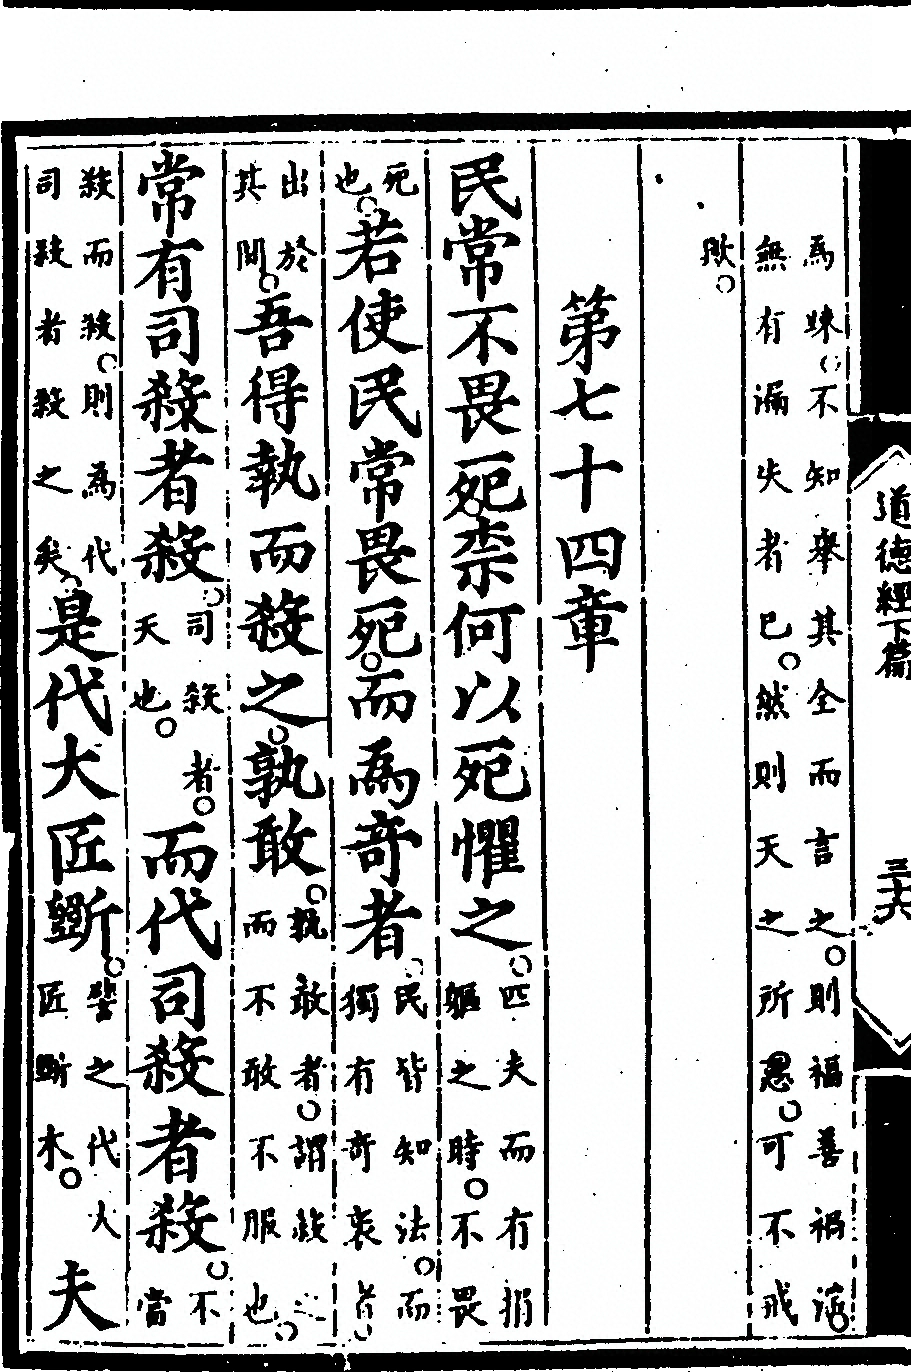 道德經下篇 三十六
為昧。不知舉其全而言之。則福善禍淫。
無有漏失者已。然則天之所惡。可不戒
歟。
第七十四章
民常不畏死。柰何以死懼之。匹夫而有捐軀之時。不畏
死也。若使民常畏死。而為奇者。民皆知法。而獨有奇衺者
出於其間。吾得執而殺之。孰敢。孰敢者。謂殺之而不敢不服也。
常有司殺者殺。司殺者。天也。而代司殺者殺。不當
殺而殺。則為代司殺者殺之矣。是代大匠斲。譬之代人匠斲木。夫